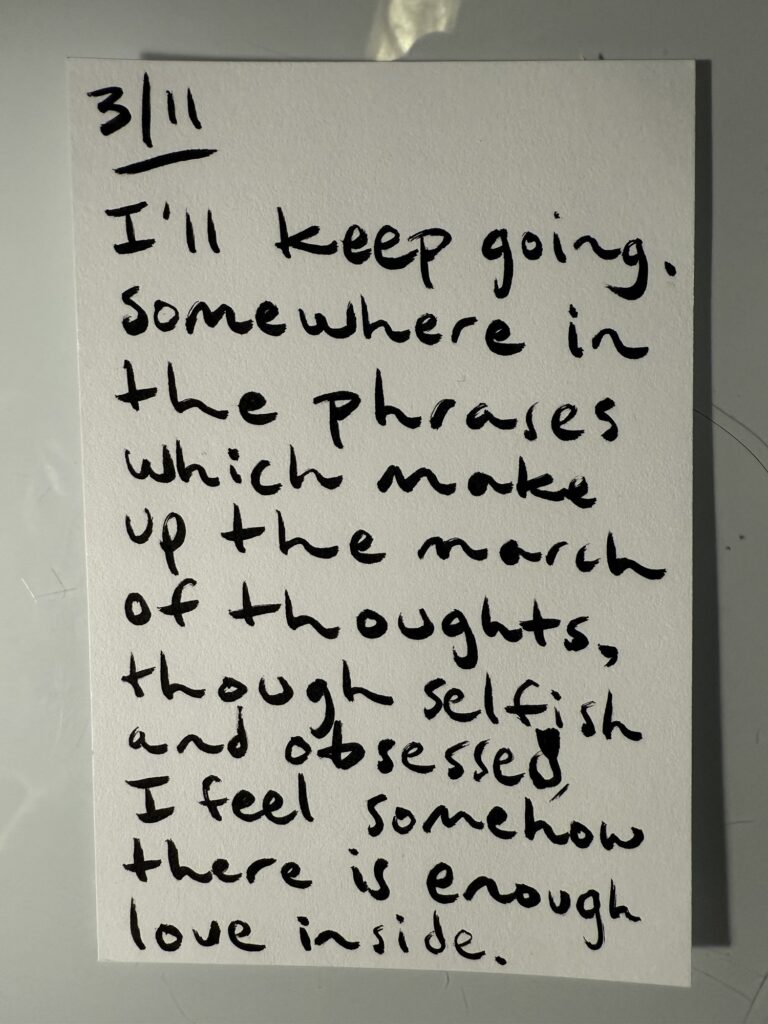 3/11
I'll keep going.
somewhere in
the phrases
which make
up the march
of thoughts,
though selfish
and obsessed,
I feel somehow
there is enough
love inside.